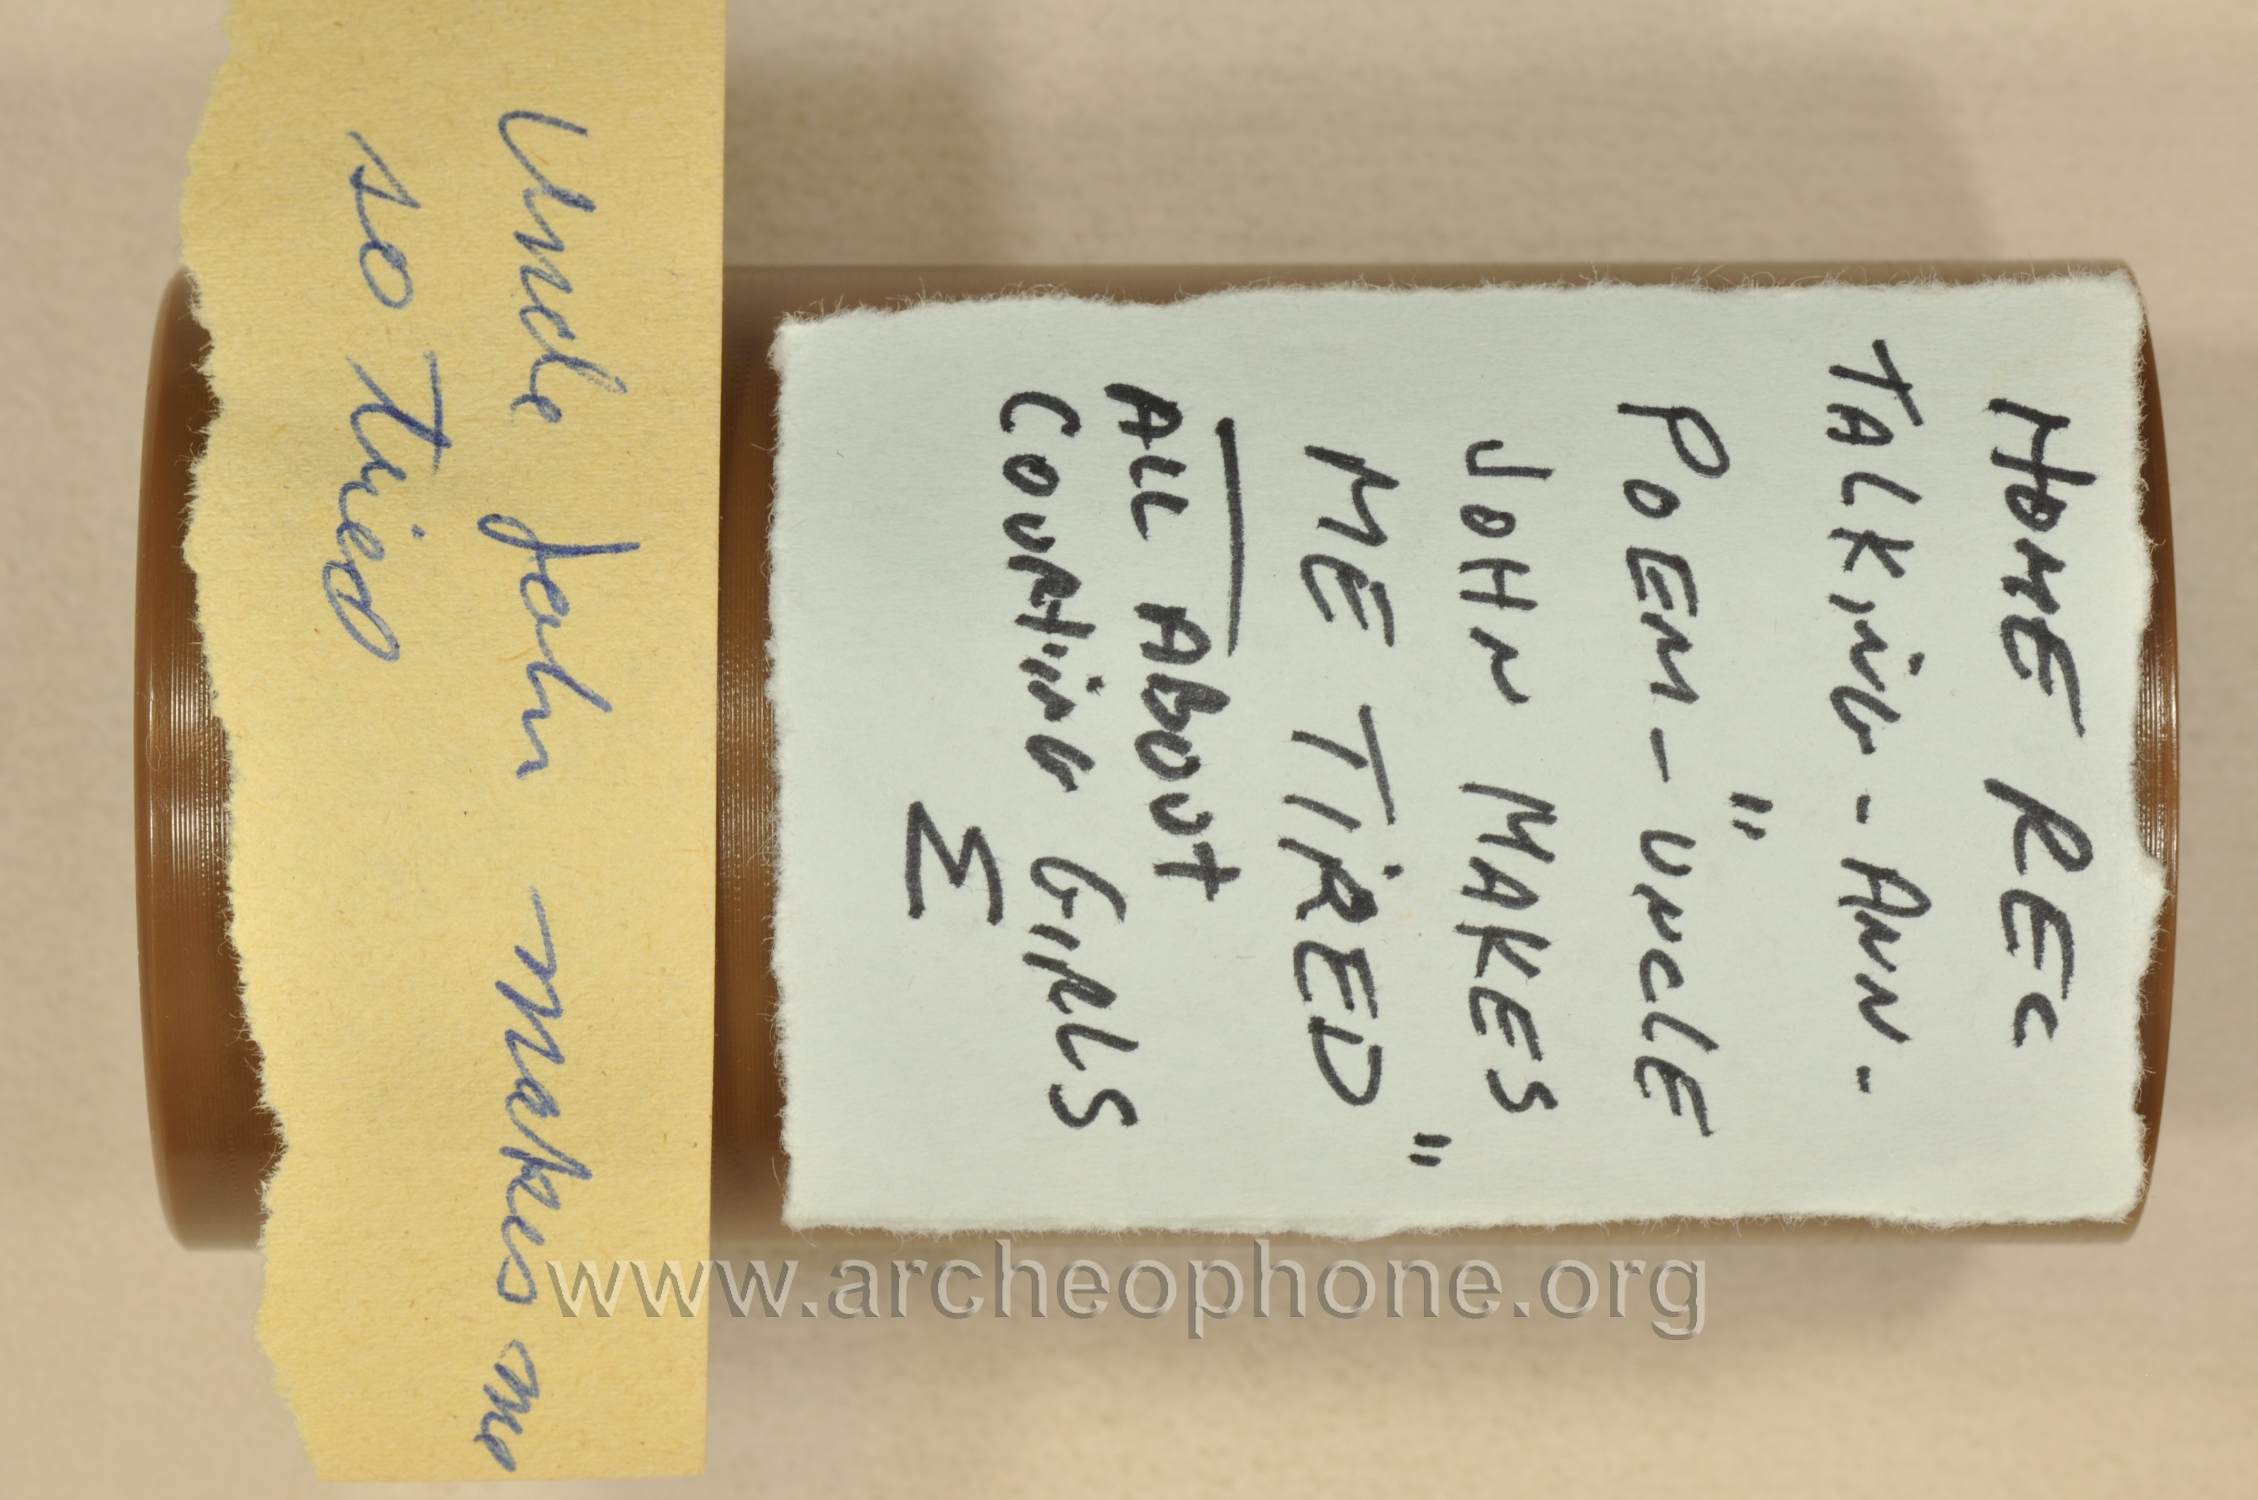 HOME REC
TALKING - ANN -
POEM - "UNCLE
JOHN MAKES
ME TIRED"
ALL ABOUT
COURTING GIRLS
Uncle John makes me
so tired
www.archeophone.org